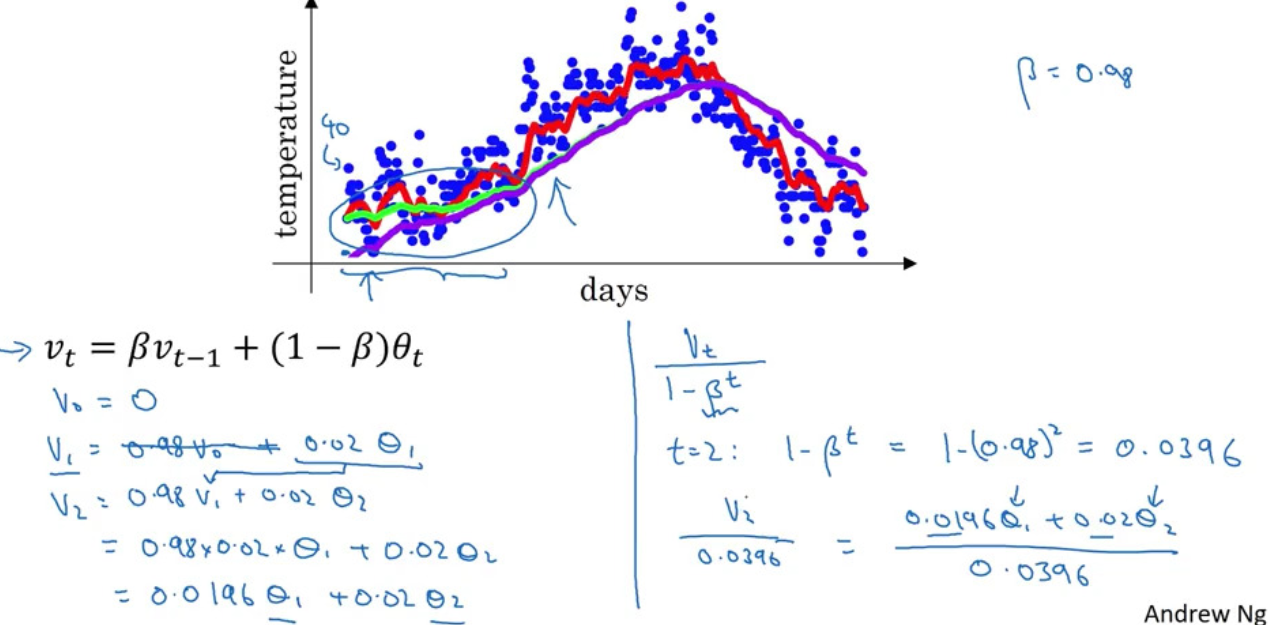 temperature
40
β = 0.98
days
→ vₜ = βvₜ₋₁ + (1 − β)θₜ
V₀ = 0
V₁ = 0.98 V₀ + 0.02 θ₁
V₂ = 0.98 V₁ + 0.02 θ₂
= 0.98 x 0.02 x θ₁ + 0.02 θ₂
= 0.0196 θ₁ + 0.02 θ₂
Vₜ
1 - βᵗ
t=2: 1 - βᵗ = 1-(0.98)² = 0.0396
V₂ / 0.0396 = 0.0196θ₁ + 0.02θ₂ / 0.0396
Andrew Ng